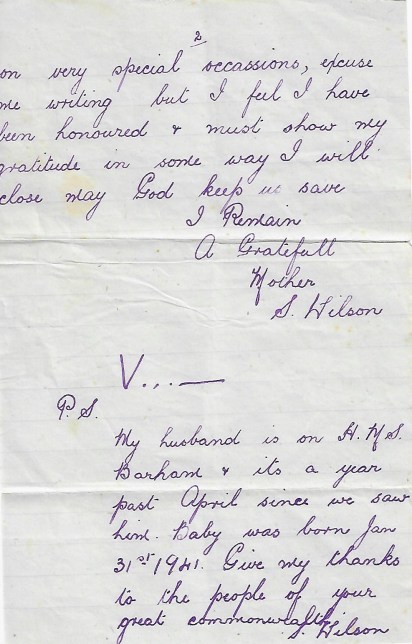 2
on very special occassions, excuse
me writing but I feel I have
been honoured & must show my
gratitude in some way I will
close may God keep us save
I Remain
A Gratefull
Mother
S. Wilson
V...—
P.S.
My husband is on H.M.S.
Barham & its a year
past April since we saw
him. Baby was born Jan
31st 1941. Give my thanks
to the people of your
great commonwealth
S. Wilson